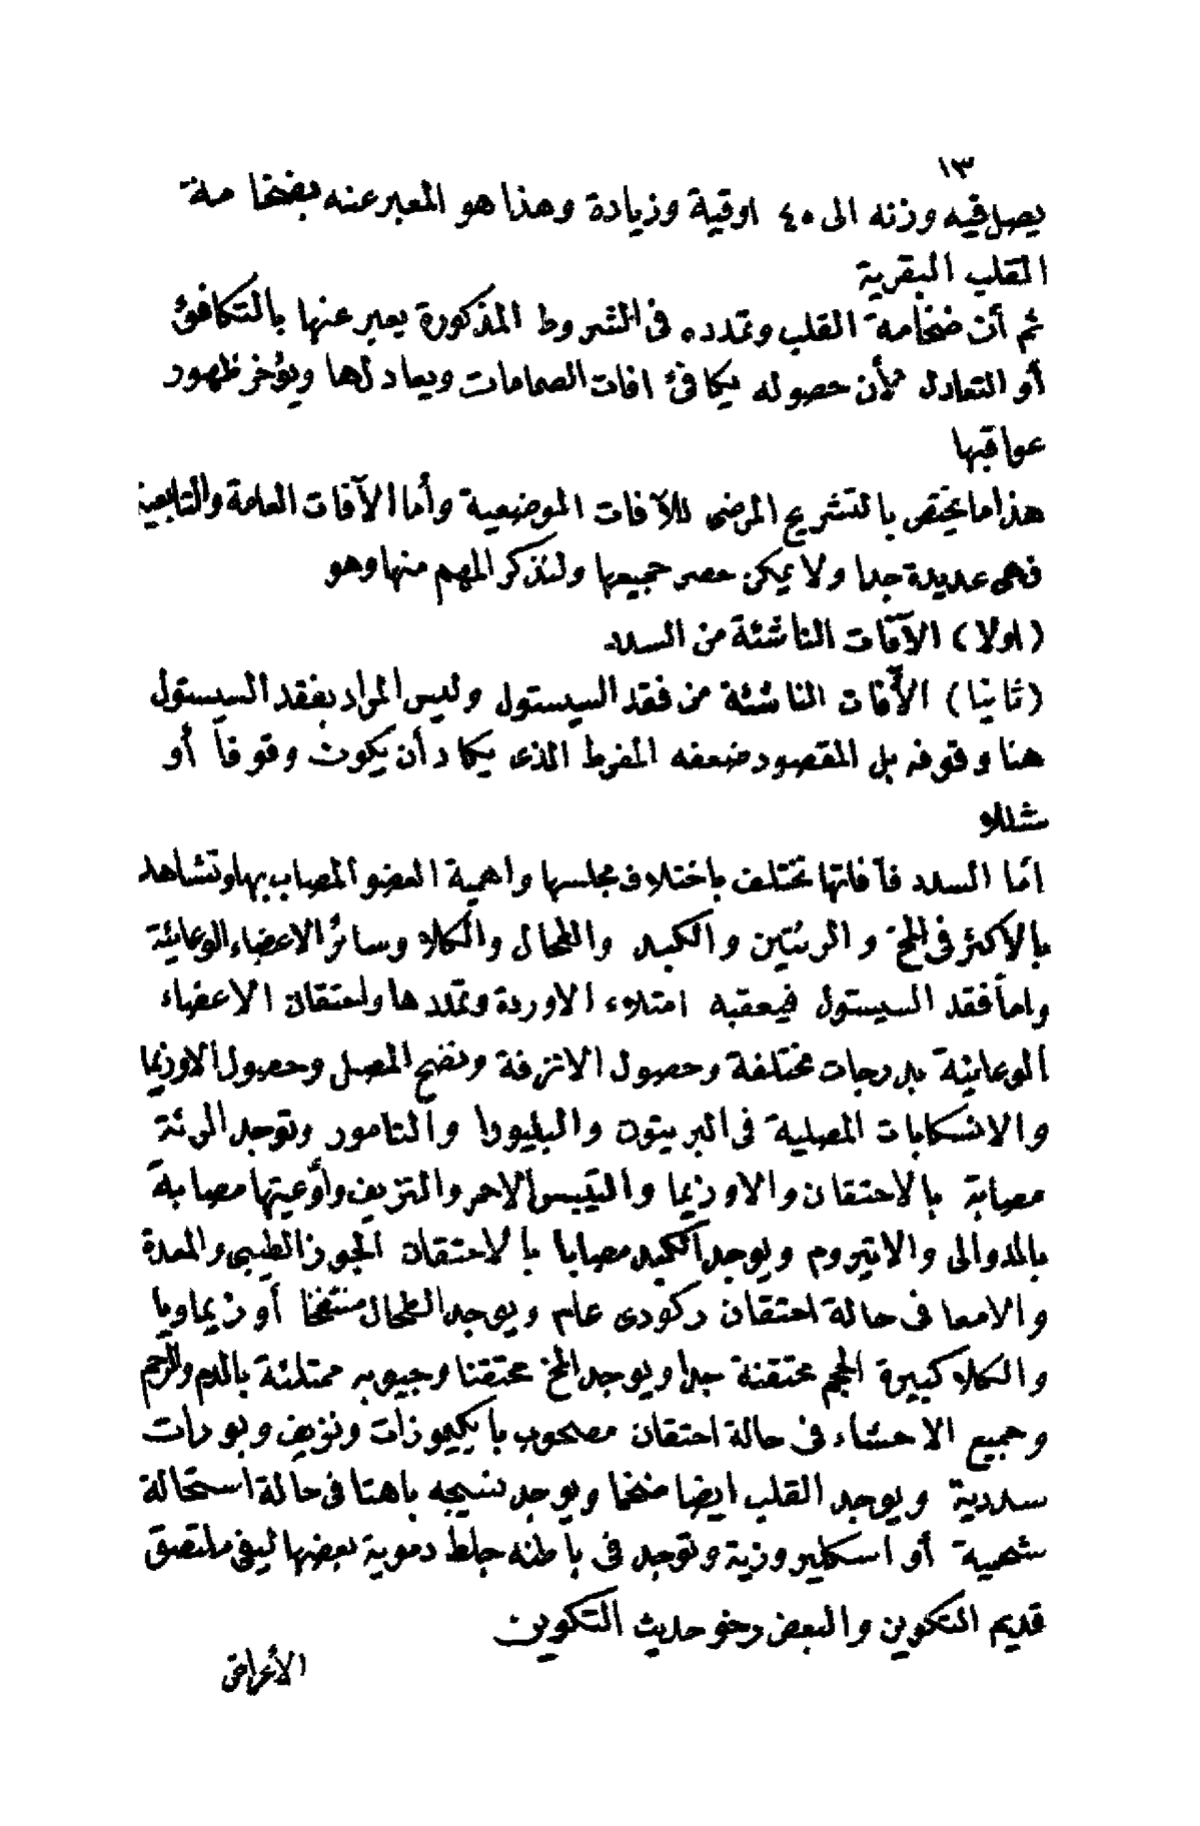 ١٣
يصل فيه وزنه الى ٤٠ اوقية وزيادة وهذا هو المعبر عنه بضخامة
القلب البقرية
ثم أن ضخامة القلب وتمدده فى الشروط المذكورة يعبر عنها بالتكافئ
أو التعادل لأن حصوله يكافئ افات الصمامات ويعادلها ويؤخر ظهور
عواقبها
هذا ما يختص بالتشريح المرضى للآفات الموضعية وأما الآفات العامة والتابعية
فهى عديدة جدا ولا يمكن حصر جميعها ولنذكر المهم منها وهو
(اولا) الآفات الناشئة من السدد
(ثانيا) الآفات الناشئة من فقد السيستول وليس المراد بفقد السيستول
هنا وقوفه بل المقصود ضعفه المفرط الذى يكاد أن يكون وقوفاً أو
شللا
امّا السدد فآفاتها تختلف باختلاف مجلسها واهمية العضو المصاب بها وتشاهد
بالأكثر فى المخ والرئتين والكبد والطحال والكلا وسائر الاعضاء الوعائية
واما فقد السيستول فيعقبه امتلاء الاوردة وتمددها واحتقان الاعضاء
الوعائية بدرجات مختلفة وحصول الانزفة ونضح المصل وحصول الاوزيما
والانسكابات المصلية فى البريتون والبليورا والتامور وتوجد الرئة
مصابة بالاحتقان والاوزيما والتيبس الاحمر والنزيف وأوعيتها مصابة
بالدوالى والاتيروم ويوجد الكبد مصابا بالاحتقان الجوز الطيبى والمعدة
والامعا فى حالة احتقان ركودى عام ويوجد الطحال منتفخا أوزيماويا
والكلا كبيرة الحجم محتقنة جدا ويوجد المخ محتقنا وجيوبه ممتلئة بالدم والرحم
وجميع الاحشاء فى حالة احتقان مصحوب بايكيموزات ونزيف وبورات
سددية ويوجد القلب ايضا ضخما ويوجد نسيجه باهتا فى حالة استحالة
شحمية أو اسكليروزية وتوجد فى باطنه جلط دموية بعضها ليفى ملتصق
قديم التكوين والبعض رخو حديث التكوين
الأعراض